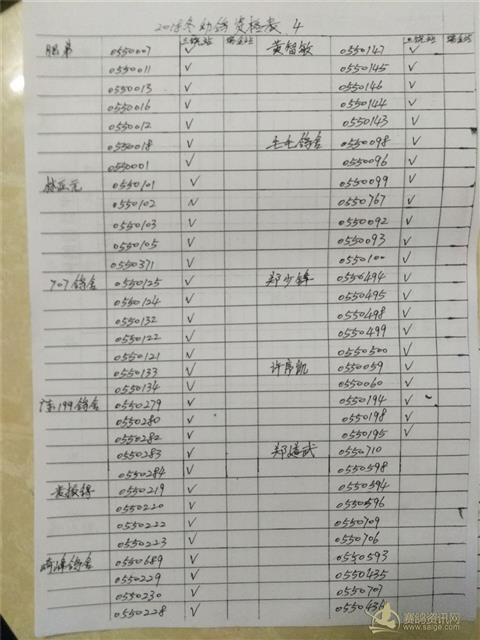 2018冬幼鸽资格表 4
胞弟 0550007 ✓ 黄智敏 0550147 ✓
0550011 ✓ 0550145 ✓
0550013 ✓ 0550146 ✓
0550016 ✓ 0550144 ✓
0550012 ✓ 0550143 ✓
0550018 ✓ 0550098 ✓
0550001 ✓ 0550096 ✓
0550101 ✓ 0550099 ✓
0550102 ✓ 0550767 ✓
0550103 ✓ 0550092 ✓
0550105 ✓ 0550093 ✓
0550371 ✓ 0550100 ✓
707鸽舍 0550125 ✓ 郑少锋 0550494 ✓
0550124 ✓ 0550495 ✓
0550132 ✓ 0550498 ✓
0550122 ✓ 0550499 ✓
0550121 ✓ 0550500 ✓
0550133 ✓ 许序凯 0550059 ✓
0550134 ✓ 0550060 ✓
199鸽舍 0550279 ✓ 0550194 ✓
0550280 ✓ 0550198 ✓
0550282 ✓ 0550195 ✓
0550283 ✓ 0550710
0550284 ✓ 0550598
0550219 ✓ 0550594
0550220 ✓ 0550596
0550222 ✓ 0550709
0550223 ✓ 0550706
鸽舍 0550689 ✓ 0550593
0550229 ✓ 0550435
0550230 ✓ 0550707
0550228 ✓ 0550436
赛鸽资讯网
www.saige.com